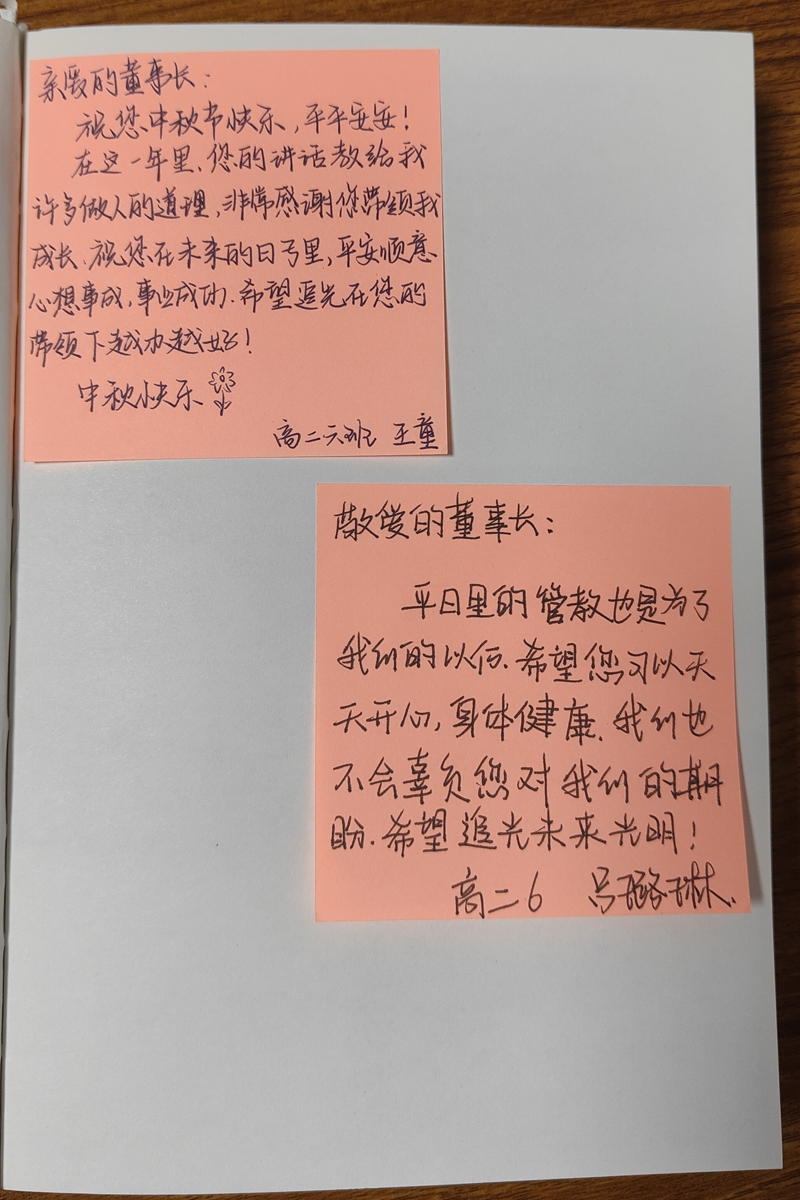 亲爱的董事长：
祝您中秋节快乐，平平安安！
在这一年里、您的讲话教给我
许多做人的道理，非常感谢您带领我
成长、祝您在未来的日子里，平安顺意
心想事成，事业成功．希望追光在您的
带领下越办越好！
中秋快乐
高二六班 王童
敬爱的董事长：
平日里的管教也是为了
我们的以后．希望您可以天
天开心，身体健康．我们也
不会辜负您对我们的期
盼．希望追光未来光明！
高二6 吕璐琳．